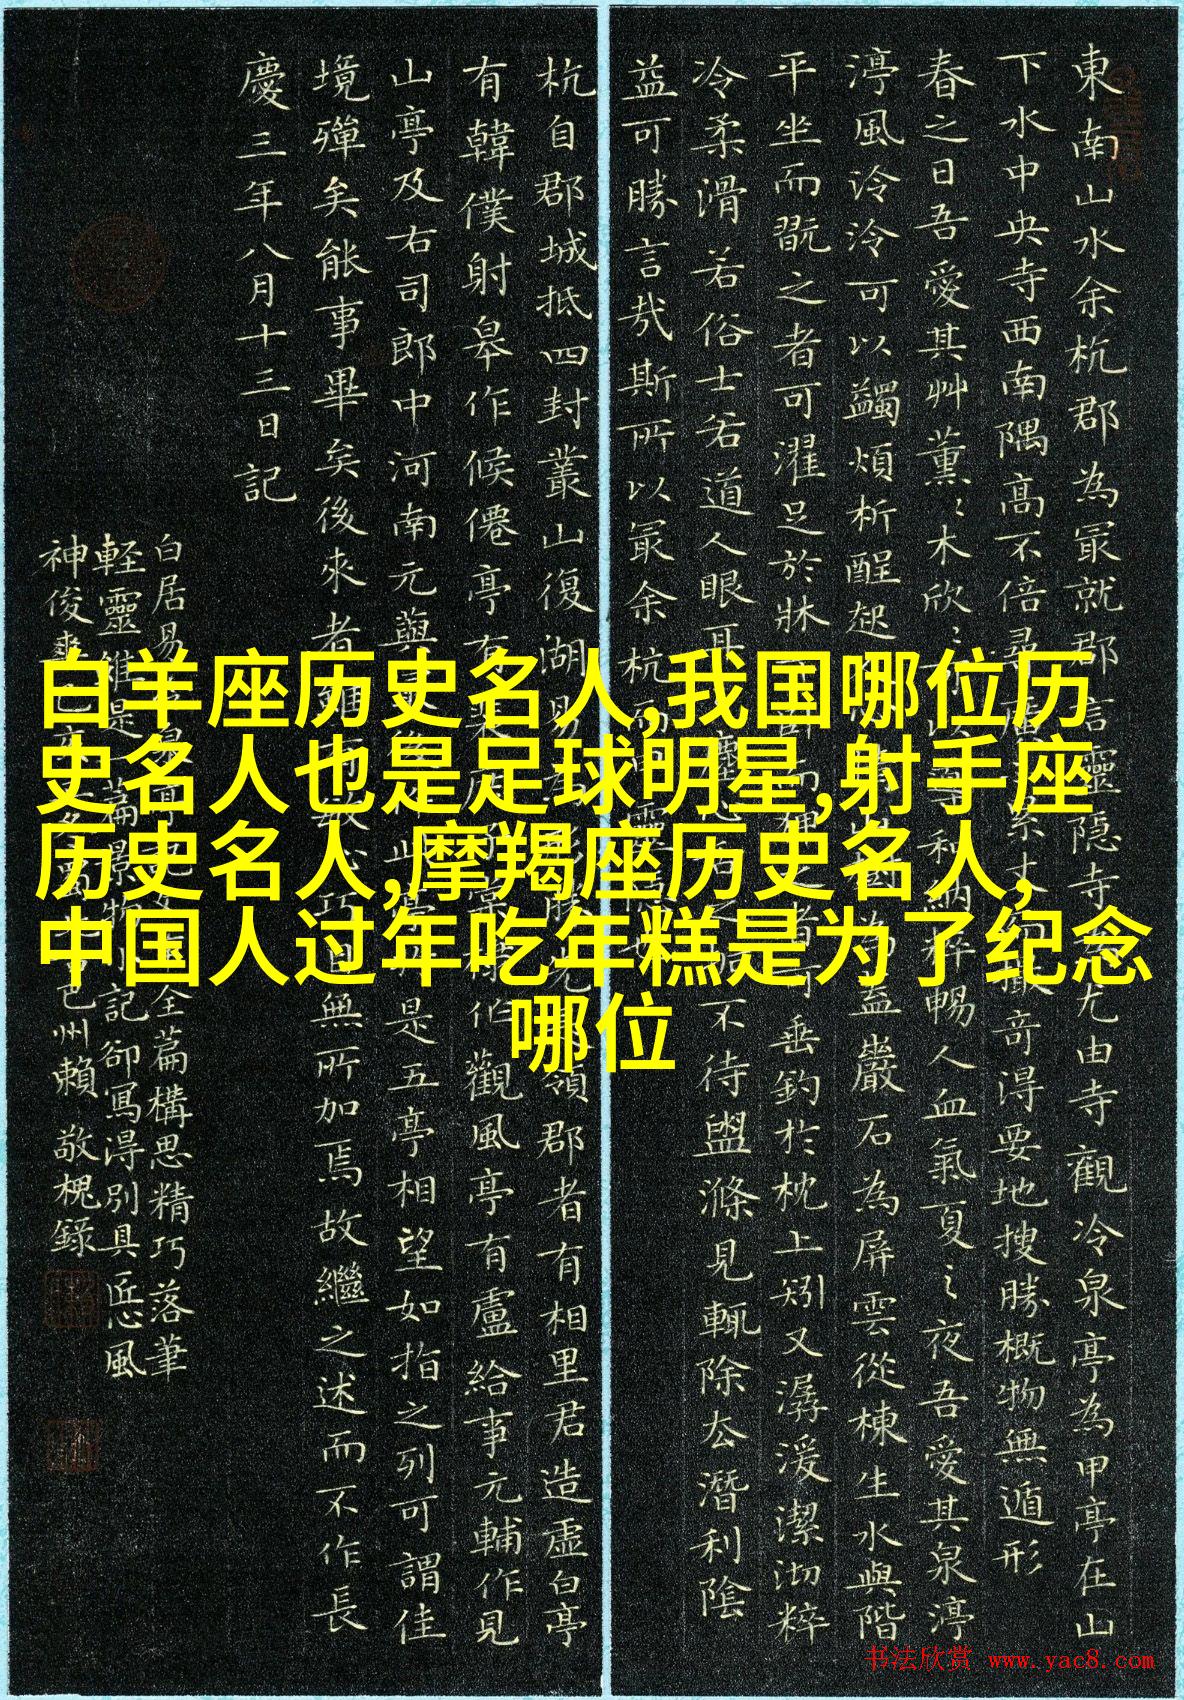 白羊座历史名人,我国哪位历
史名人也是足球明星,射手座
历史名人,摩羯座历史名人,
中国人过年吃年糕是为了纪念
哪位
東南山水余杭郡為冣就郡言靈隐寺尤由寺觀冷泉亭為甲亭在山
下水中央寺西南隅高不倍尋廣累丈撮竒得要地搜勝概物無遁形
春之日吾愛其艸薰〻木欣〻可以導和納粹暢人血氣夏之夜吾愛其泉渟
渟風泠泠可以蠲煩析酲起為盖巖石為屏雲從棟生水與階
平坐而翫之者可濯足於牀下卧而狎之者可垂釣於枕上矧又潺湲潔沏粹
冷柔滑若俗士若道人眼耳不待盥滌見輒除去潛利陰
益可勝言㢤斯所以冣余杭而
杭自郡城抵四封叢山復湖易為形勝先領郡者有相里君造虛白亭
有韓僕射皋作候僊亭有作觀風亭有盧給事元輔作見
山亭及右司郎中河南元藇是五亭相望如指之列可謂佳
境殫矣能事畢矣後來者雖有敏心巧目無所加焉故繼之述而不作長
慶三年八月十三日記
白居易全篇構思精巧落筆
軽靈雖是一篇景物小記卻寫得別具匠心風
神俊爽巴州賴敬槐錄
书法欣赏 www.yac8.com